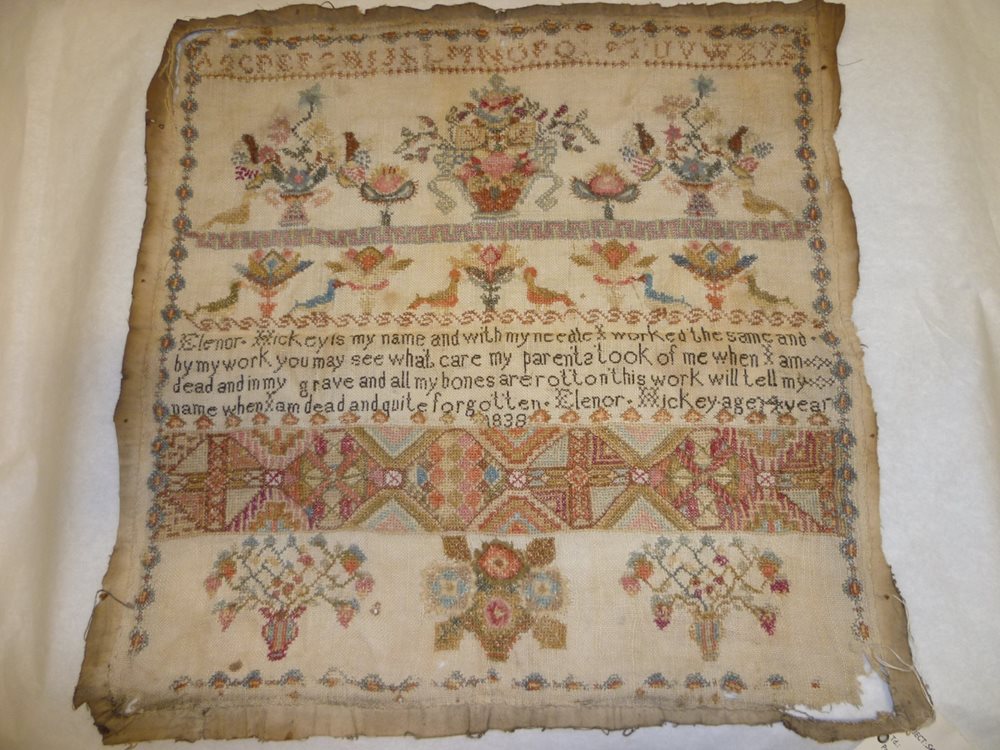 ABCDEFGHIJKLMNOPQ STUVWXYZ
Elenor · Hickey is my name and with my needle I worked the same and ·
by my work you may see what care my parents took of me when I am
dead and in my grave and all my bones are rotton this work will tell my
name when I am dead and quite forgotten · Elenor · Hickey · age 14 year
1838